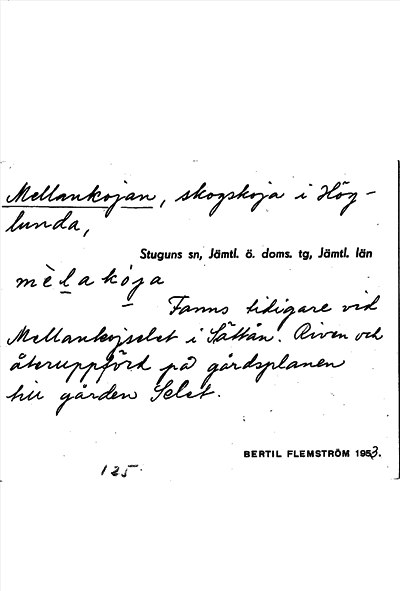 Mellankojan, skogskoja i Hög-
lunda,
Stuguns sn, Jämtl. ö. doms. tg, Jämtl. län
mèlakòja
Fanns tidigare vid
Mellankojselet i Sättån. Riven och
återuppförd på gårdsplanen
till gården Selet.
BERTIL FLEMSTRÖM 1953.
125.